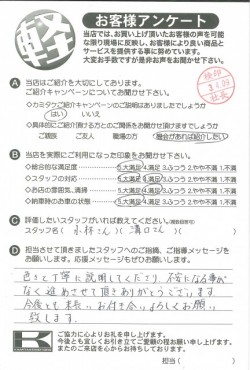 軽
お客様アンケート
当店では、お買い上げ頂いたお客様の声を可能
な限り現場に反映し、お客様により良い商品と
サービスを提供する事に努めています。
大変お手数ですが是非お声をお聞かせ下さい。
検印
A 当店はご紹介を大切にしております。
ご紹介キャンペーンについてお聞かせ下さい。
◇カミタケご紹介キャンペーンのご説明はありましたでしょうか
はい いいえ
◇具体的にご紹介頂ける方とのご関係をお聞かせ頂けますでしょうか
ご親族 ご友人 職場の方 機会があれば紹介したい
B 当店を実際にご利用になった印象をお聞かせ下さい。
◇総合的な満足度 5.大満足 4.満足 3.ふつう 2.やや不満 1.不満
◇スタッフの対応 5.大満足 4.満足 3.ふつう 2.やや不満 1.不満
◇お店の雰囲気、清掃 5.大満足 4.満足 3.ふつう 2.やや不満 1.不満
◇納車時のお車の状態 5.大満足 4.満足 3.ふつう 2.やや不満 1.不満
C 評価したいスタッフがいれば教えてください。(複数回答可)
スタッフ名( 小林さん )( 溝口さん )
D 担当させて頂きましたスタッフへのご指摘、ご指導メッセージを
お願いします。応援メッセージもぜひお願いします。
色々と丁寧に説明してくださり、不安になる事が
なく進めさせて頂きありがとうございます。
今後とも長いお付き合いよろしくお願い
致します。
K
ご協力に心よりお礼を申し上げます。
今後とも宜しくお引き立てご愛顧の程お願い申し上げます。
またのご来店を心からお待ちしております。
担当( )